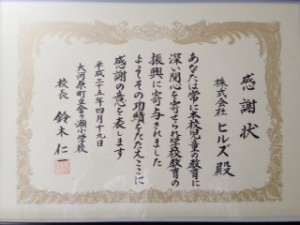 感謝状
株式会社 ヒルズ殿
あなたは常に本校児童の教育に
深い関心を寄せられ学校教育の
振興に寄与されました
よってその功績をたたえここに
感謝の意を表します
平成二十五年四月十九日
大河原町立金ケ瀬小学校
校長 鈴木仁一